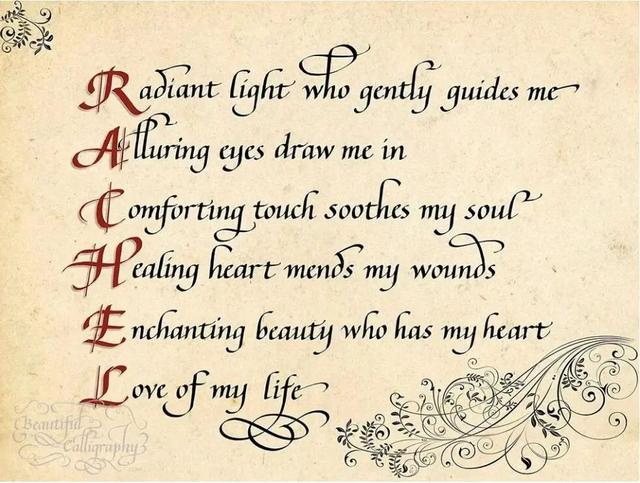 Radiant light who gently guides me
Alluring eyes draw me in
Comforting touch soothes my soul
Healing heart mends my wounds
Enchanting beauty who has my heart
Love of my life
Beautiful
Calligraphy